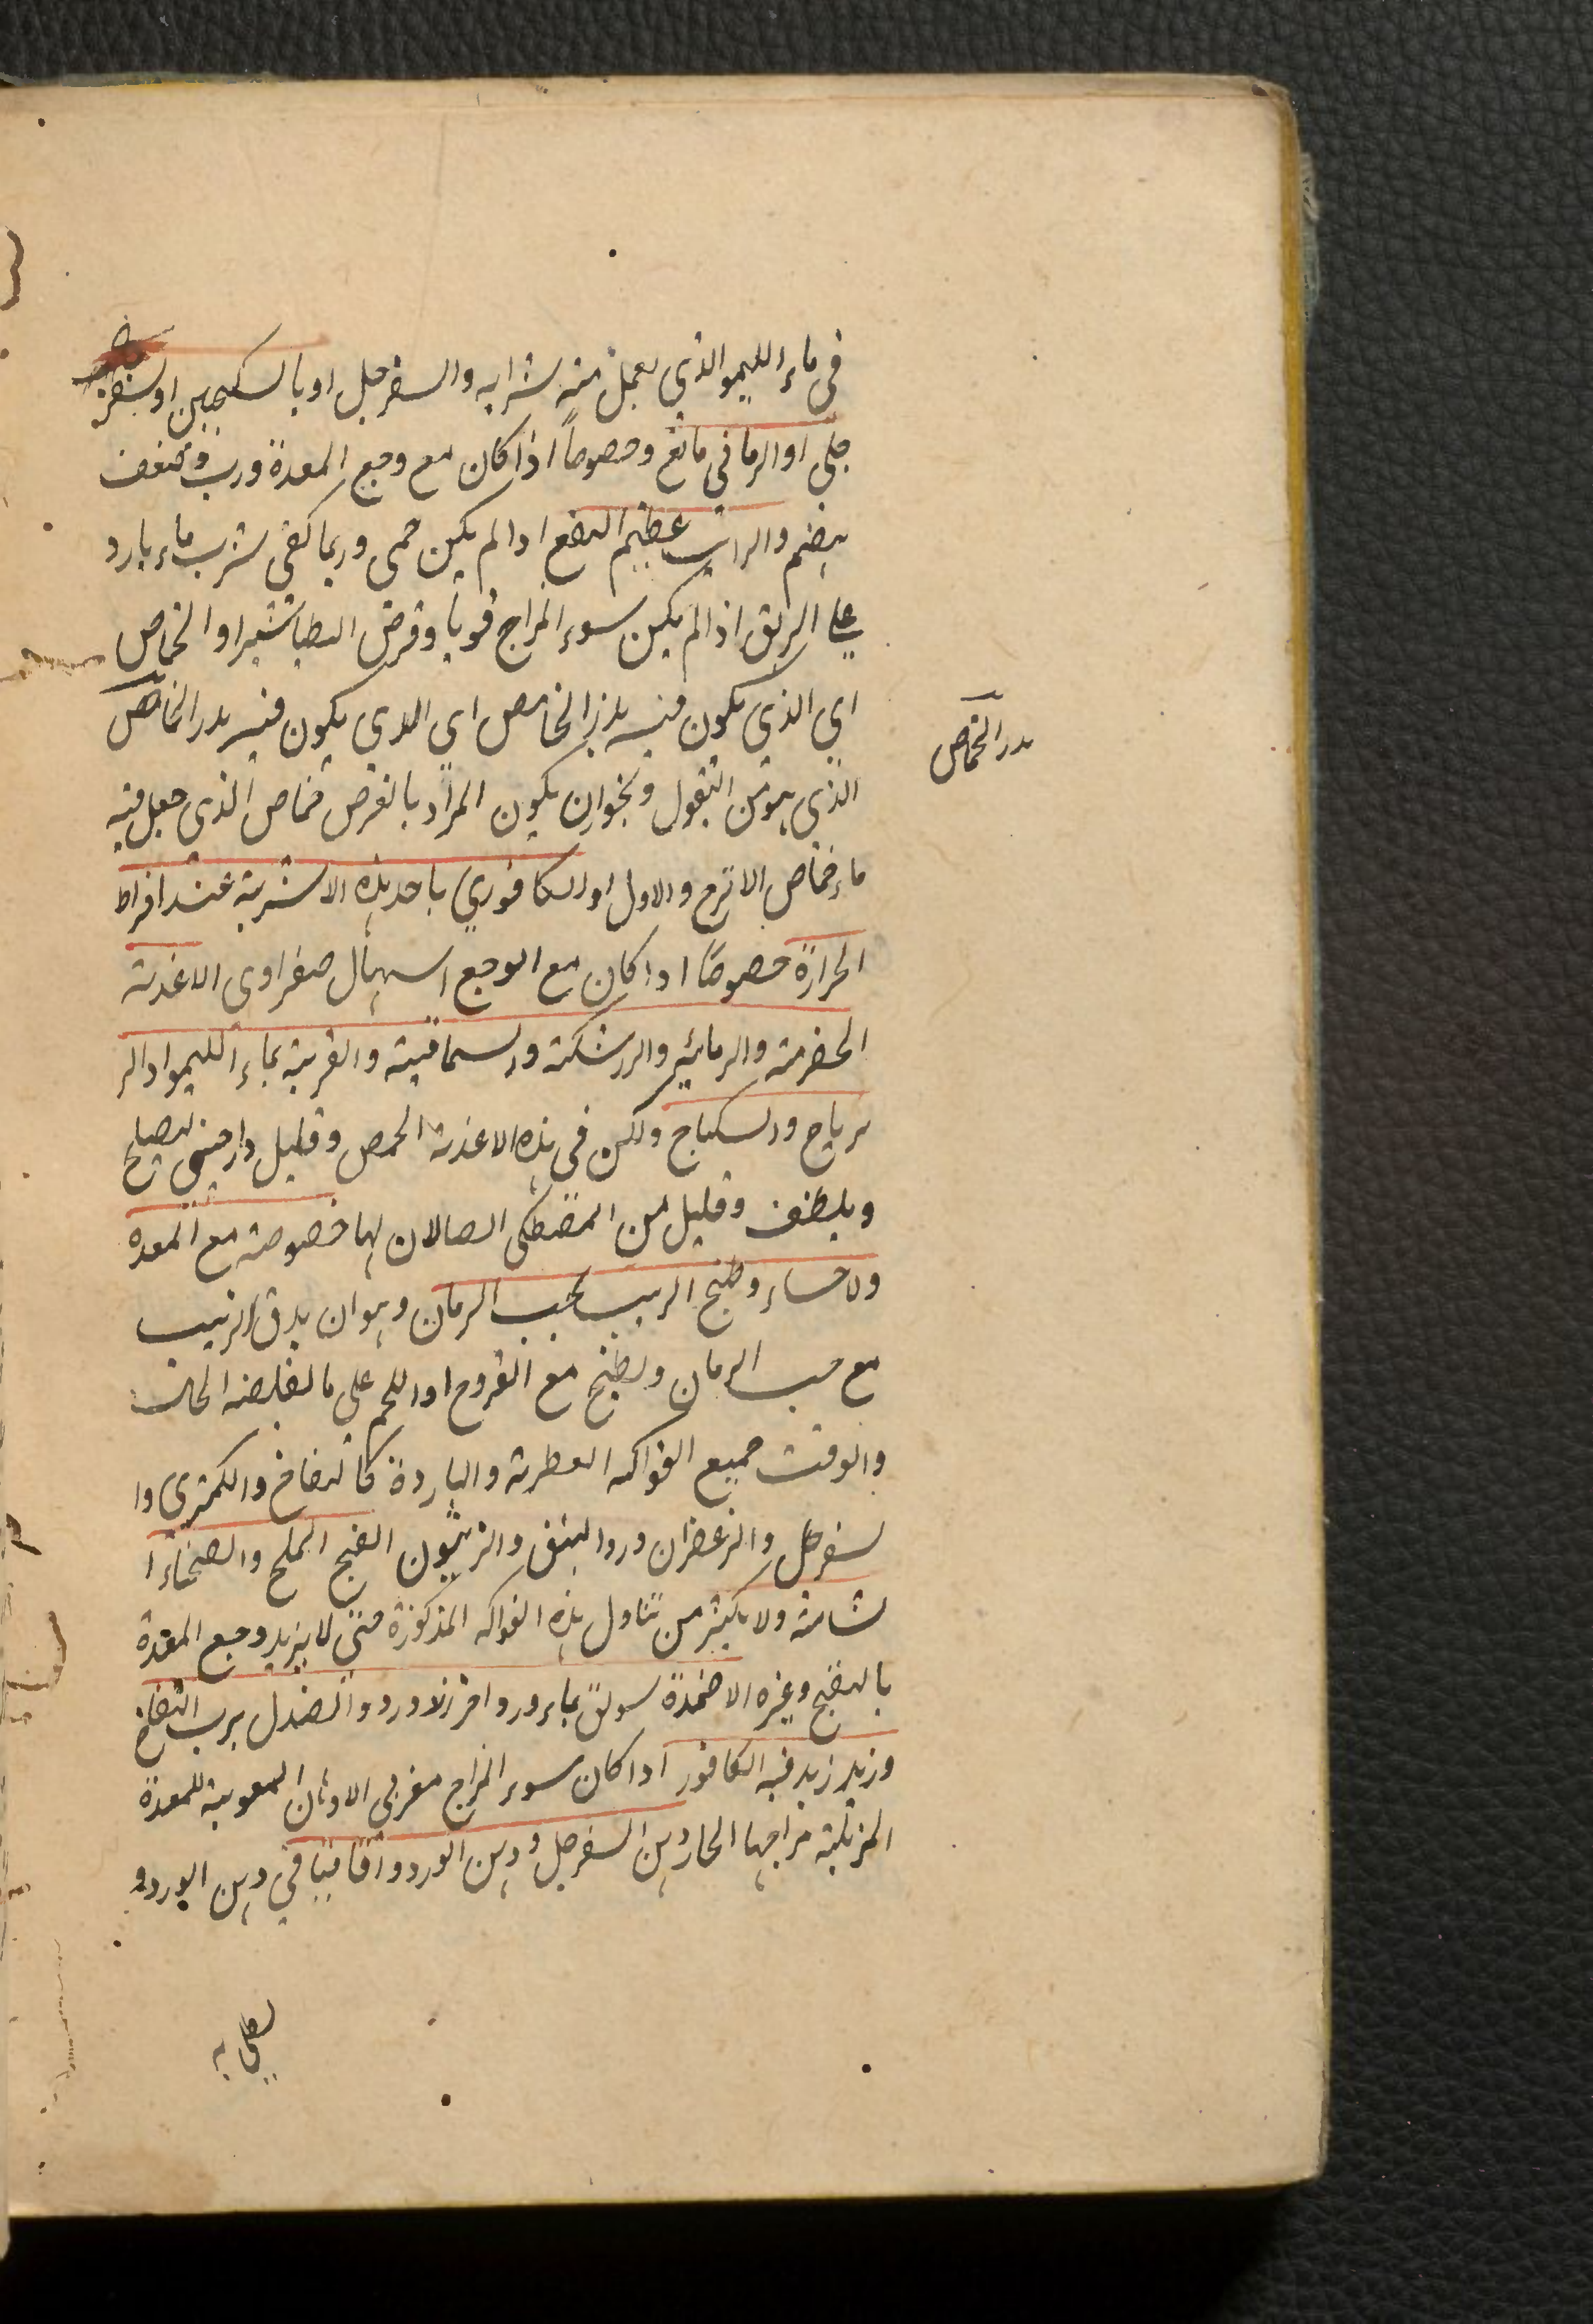 في ماء الليمو الذي يعمل منه شرابه والسفرجل او بالسكنجبين اوسفر
جلى او الرماني مانع وخصوصاً اذا كان مع وجع المعدة ورب وضعف
هضم والراتب عظيم النفع اذا لم يكن حمى وربما كفى شرب ماء بارد
على الريق اذا لم يكن سوء المزاج قويا وقرص الطباشير او الحماض
اي الذي يكون فيه بذر الحامض اي الذي يكون فيه بدر الحماض
بدر الحماض
الذي هو من البقول ويجوز ان يكون المراد بالقرص حماض الذي جعل فيه
ماء حماض الاترج والاول او الكافوري باحد هذه الاشربة عند افراط
الحرارة خصوصًا اذا كان مع الوجع اسهال صفراوى الاغذية
الحصرمية والرمانية والزرشكية والسماقية والقرعية بماء الليمو او الز
يرباج والسكباج ولكن في هذه الاغذية الحمص وقليل دارصيني ليصلح
ويلطف وقليل من المصطكى ايضا لان لها خصوصية مع المعدة
والاحساء وطبخ الزبيب بحب الرمان وهو ان يدق الزبيب
مع حب الرمان ويطبخ مع الفروج او اللحم على ما يقتضيه الحال
والوقت جميع الفواكه العطرية والباردة كالتفاح والكمثرى وا
لسفرجل والزعفران ورد البنق والزيتون الفج المملح والصحناء ا
لشامية ولا يكثر من تناول هذه الفواكه المذكورة حتى لا يزيد وجع المعدة
بالنفخ وغيره الاضمدة سويق بماء ورد وافر زد ورد والصندل برب التفاح
وزيد زيد فيه الكافور اذا كان سوء المزاج مفرط الادهان المقوية للمعدة
المزيلة مزاجها الحار دهن السفرجل ودهن الورد واقاقيا في دهن الورد و
يطلى به